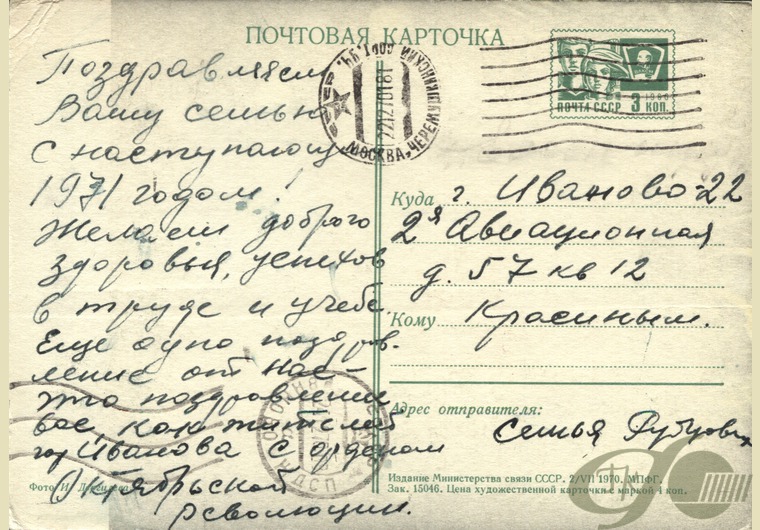 ПОЧТОВАЯ КАРТОЧКА
Поздравляем
Вашу семью
с наступающим
1971 годом!
Желаем доброго
здоровья, успехов
в труде и учебе.
Еще одно поздрав-
ление от нас –
это поздравляем
вас, как жителей
гор Иванова с орденом
Октябрьской
революции.
МОСКВА, ЧЕРЕМУШКИНСКИЙ
ПОЧТА СССР 3 КОП.
Куда г. Иваново-22
2я Авиационная
д. 57 кв 12
Кому Красиным.
Адрес отправителя:
Семья
Издание Министерства связи СССР. 2/VII 1970. МПФГ.
Зак. 15046. Цена художественной карточки с маркой 4 коп.
Фото И.